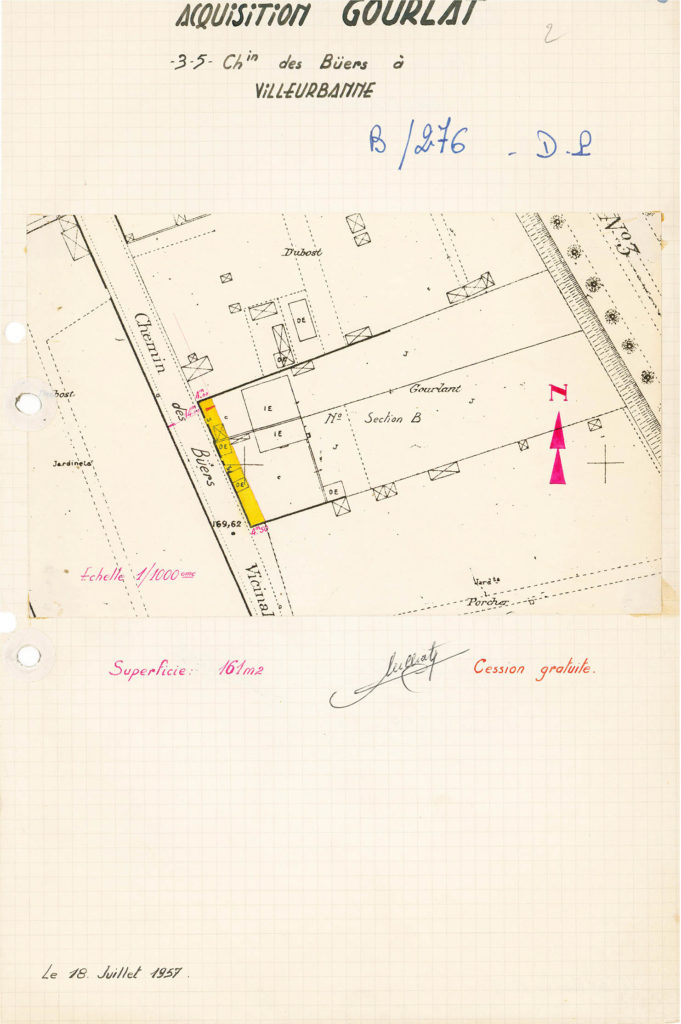 ACQUISITION GOURLAT
2
-3-5- Chin des Büers à
VILLEURBANNE
B/276 - D.L
Dubost
No 3
Chemin
des
Büers
Vicinal
DE
DE
J
Gourlant
1E
No Section B
1E
J
J
DE
DE
DE
N
Jardinets
169,62
Echelle 1/1000eme
Jard ts
Porcher
Superficie: 161m2
Cession gratuite.
Le 18. Juillet 1957.